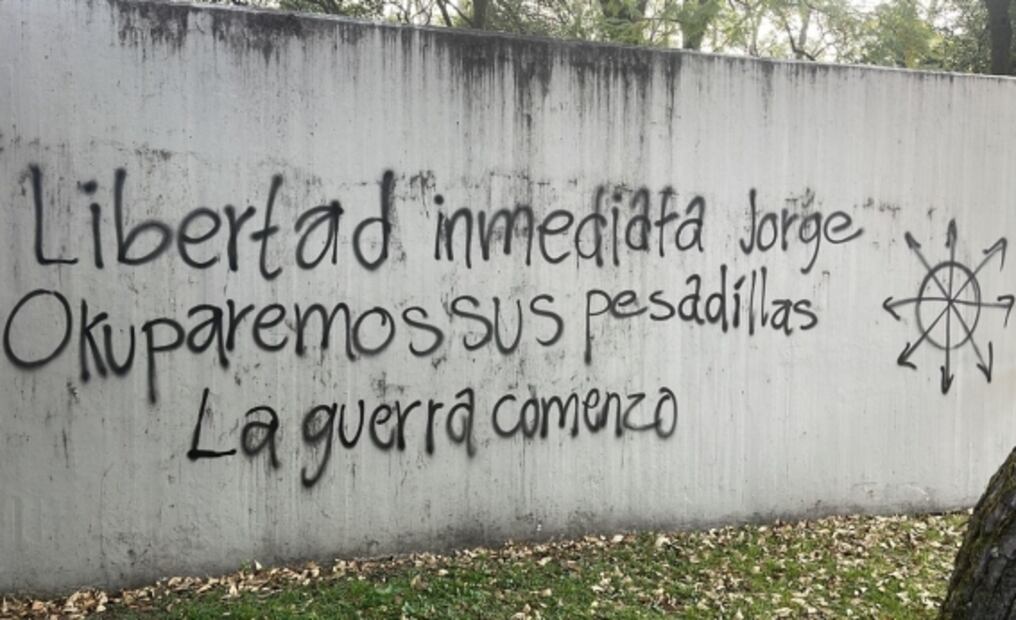 Libertad inmediata Jorge
Okuparemos sus pesadillas
La guerra comenzo